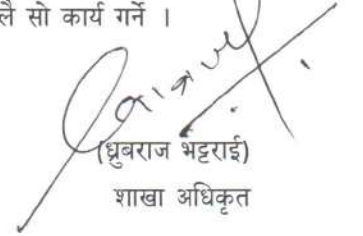 लै सो कार्य गर्ने ।
(ध्रुबराज भट्टराई)
शाखा अधिकृत